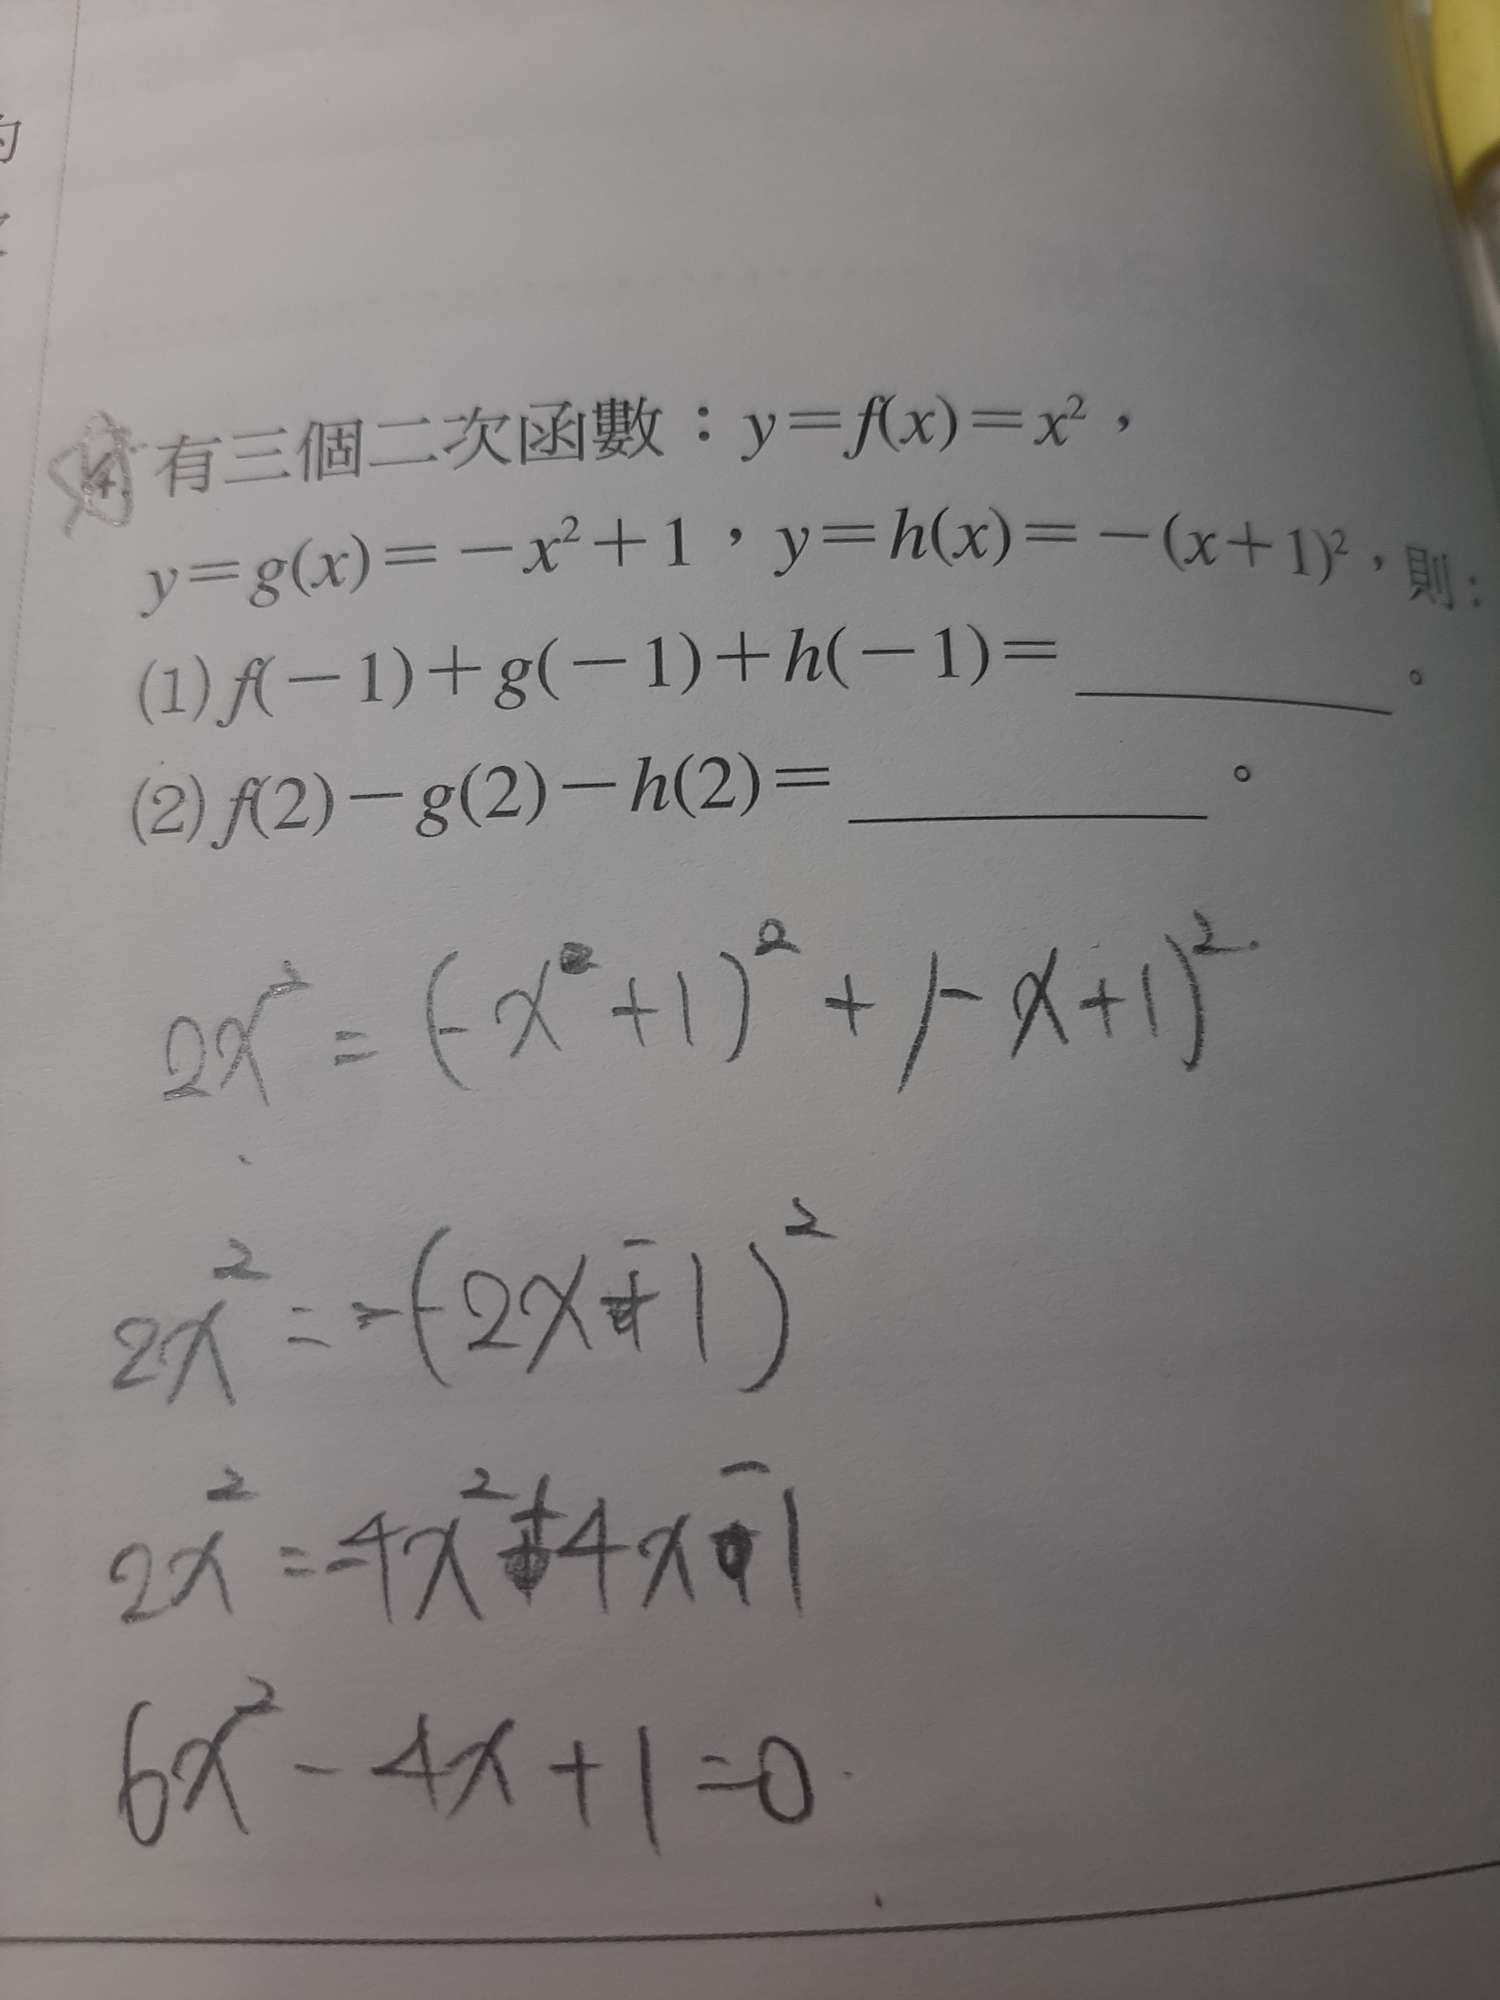 的
4. 有三個二次函數：y＝f(x)＝x²，
y＝g(x)＝－x²＋1，y＝h(x)＝－(x＋1)²，則：
(1) f(－1)＋g(－1)＋h(－1)＝＿＿＿＿。
(2) f(2)－g(2)－h(2)＝＿＿＿＿。
2x² = (-x²+1)² + (-x+1)²
2x² = -(2x-1)²
2x² = -4x²+4x-1
6x² - 4x + 1 = 0